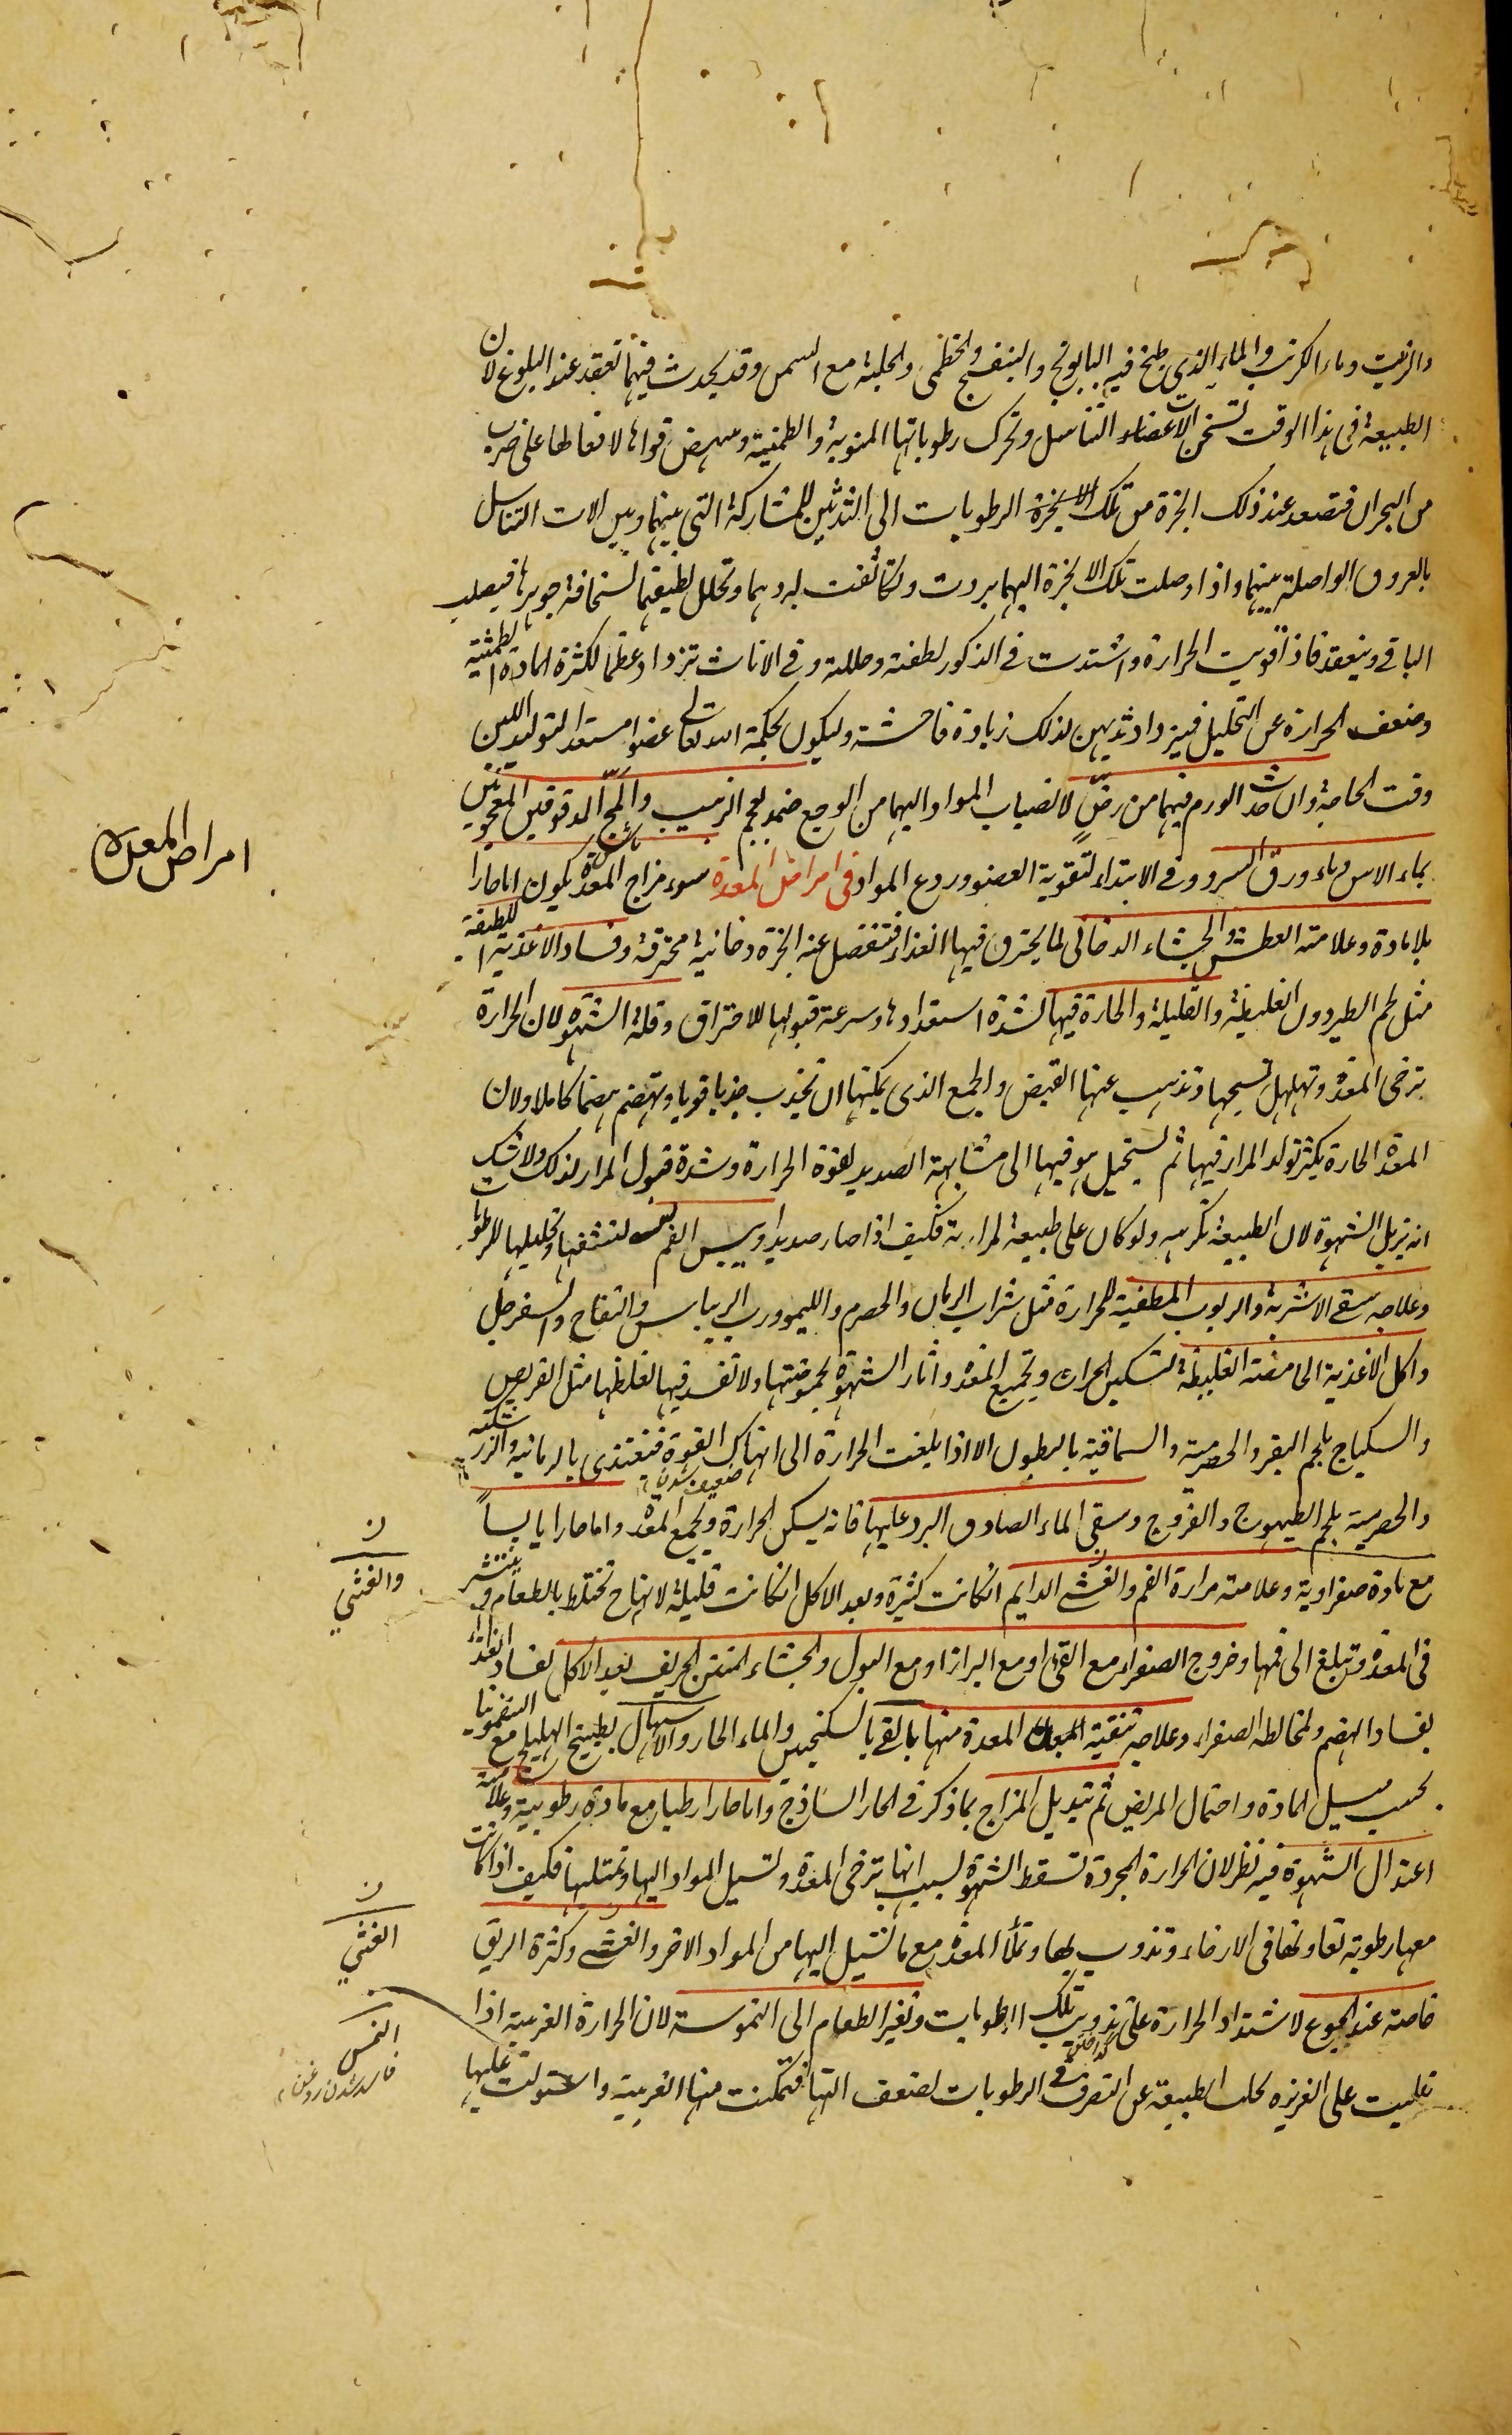 والزيت وماء الكرنب والماء الذي طبخ فيه البابونج والبنفسج والخطمى والحلبة مع السمن وقد يحدث فيهما تعقد عند البلوغ لان
الطبيعة فى هذا الوقت تسخن الاعضاء التناسل وتحرك رطوباتها المنوية والطمثية وينهض قواها لانفعالها على ضرب
من البحران فتصعد عند ذلك ابخرة من تلك الابخرة الرطوبات الى الثديين للمشاركة التى بينهما وبين الات التناسل
بالعروق الواصلة بينهما واذا وصلت تلك الابخرة اليهما بردت وتكاثفت لبردهما وتحلل لطيفها لسخافة جوهرها فيصلب
الباقى وينعقد فاذا قويت الحرارة واشتدت فى الذكور لطفته وحللته وفى الاناث تزداد عظما لكثرة المادة الطمثية
وضعف الحرارة عن التحليل فيزداد ثديهن لذلك زيادة فاحشة وليكون بحكمة الله تعالى عضوا مستعدا لتوليد اللبن
وقت الحاجة وان حدث الورم فيهما من رضّ لانصباب المواد اليهما من الوجع ضمد بعجم الزبيب والمج المدقوقين المعجونين
بماء الاس وماء ورق السرو وفى الابتداء لتقوية العضو وردع المواد فى امراض المعدة سوء مزاج المعدة يكون اما حارا
بلا مادة وعلامته العطش والجشاء الدخانى لما يحترق فيها الغذاء فتنفصل عنه ابخرة دخانية محترقة وفساد الاغذية اللطيفة
مثل لحم الطير دون الغليظة والقليلة والحارة فيها لشدة استعدادها وسرعة قبولها للاحتراق وقلة الشهوة لان الحرارة
ترخى المعدة وتهلهل نسيجها وتذهب عنها القبض والجمع الذى يمكنها ان تجذب جذبا قويا وتهضم هضما كاملا ولان
المعدة الحارة يكثر تولد المرار فيها ثم يستحيل هو فيها الى مشابهة الصديد لقوة الحرارة وشدة قبول المرار لذلك ولا شك
انه يزيل الشهوة لان الطبيعة تكرهه ولو كان على طبيعة المرارية فكيف اذا صار صديدا ويبس الفم لتنشفها وتحليلها الرطوبات
وعلاجه سقى الاشربة والربوب المطفية للحرارة مثل شراب الرمان والحصرم والليمو ورب الريباس والتفاح والسفرجل
واكل الاغذية الحامضة الغليظة لتسكين الحرارة وتجميع المعدة واثار الشهوة لحموضتها ولا تفسد فيها لغلظها مثل القريص
والسكباج بلحم البقر والحصرمية والسماقية بالبطون الا اذا بلغت الحرارة الى انهاك القوة فتغتذى بالرمانية والزرشكية
والحصرمية بلحم الطيهوج والفروج وسقى الماء الصادق البرد عليها فانه يسكن الحرارة ويجمع المعدة واما حارا يابساً
مع مادة صفراوية وعلامته مرارة الفم والغثى الدايم انكانت كثيرة وبعد الاكل انكانت قليلة لانها ح تختلط بالطعام وينتشر
فى المعدة وتبلغ الى فمها وخروج الصفراء مع القئ او مع البراز او مع البول والجشاء المنتن الحريف بعد الاكل لفساد الغذاء
بفساد الهضم ولمخالطة الصفراء وعلاجه تنقية المعدة منها بالقئ بالسكنجبين والماء الحار والاسهال بطبيخ الهليلج مع السقمونيا
بحسب ميل المادة واحتمال المريض ثم تبديل المزاج بما ذكر فى الحار الساذج واما حارا رطبا مع مادة رطوبية وعلامته
اعتدال الشهوة فيه نظر لان الحرارة المجردة تسقط الشهوة لسبب انها ترخى المعدة وتسيل المواد اليها وتمتليها فكيف اذا كانت
معها رطوبة تعاونها فى الارخاء وتذوب بها وتملأ المعدة مع ما تسيل اليها من المواد الاخر والغثى وكثرة الريق
خاصة عند الجوع لاشتداد الحرارة على تذويب تلك الرطوبات وتغير الطعام الى النموسة لان الحرارة الغريبة اذا
تغلبت على الغريزة كلت الطبيعة عن التصرف فى الرطوبات لضعف التها فتمكنت منها الغريبة واستولت عليها
امراض المعدة
ن
والغثي
ن
الغثي
النمس
فاسد شدن روغن